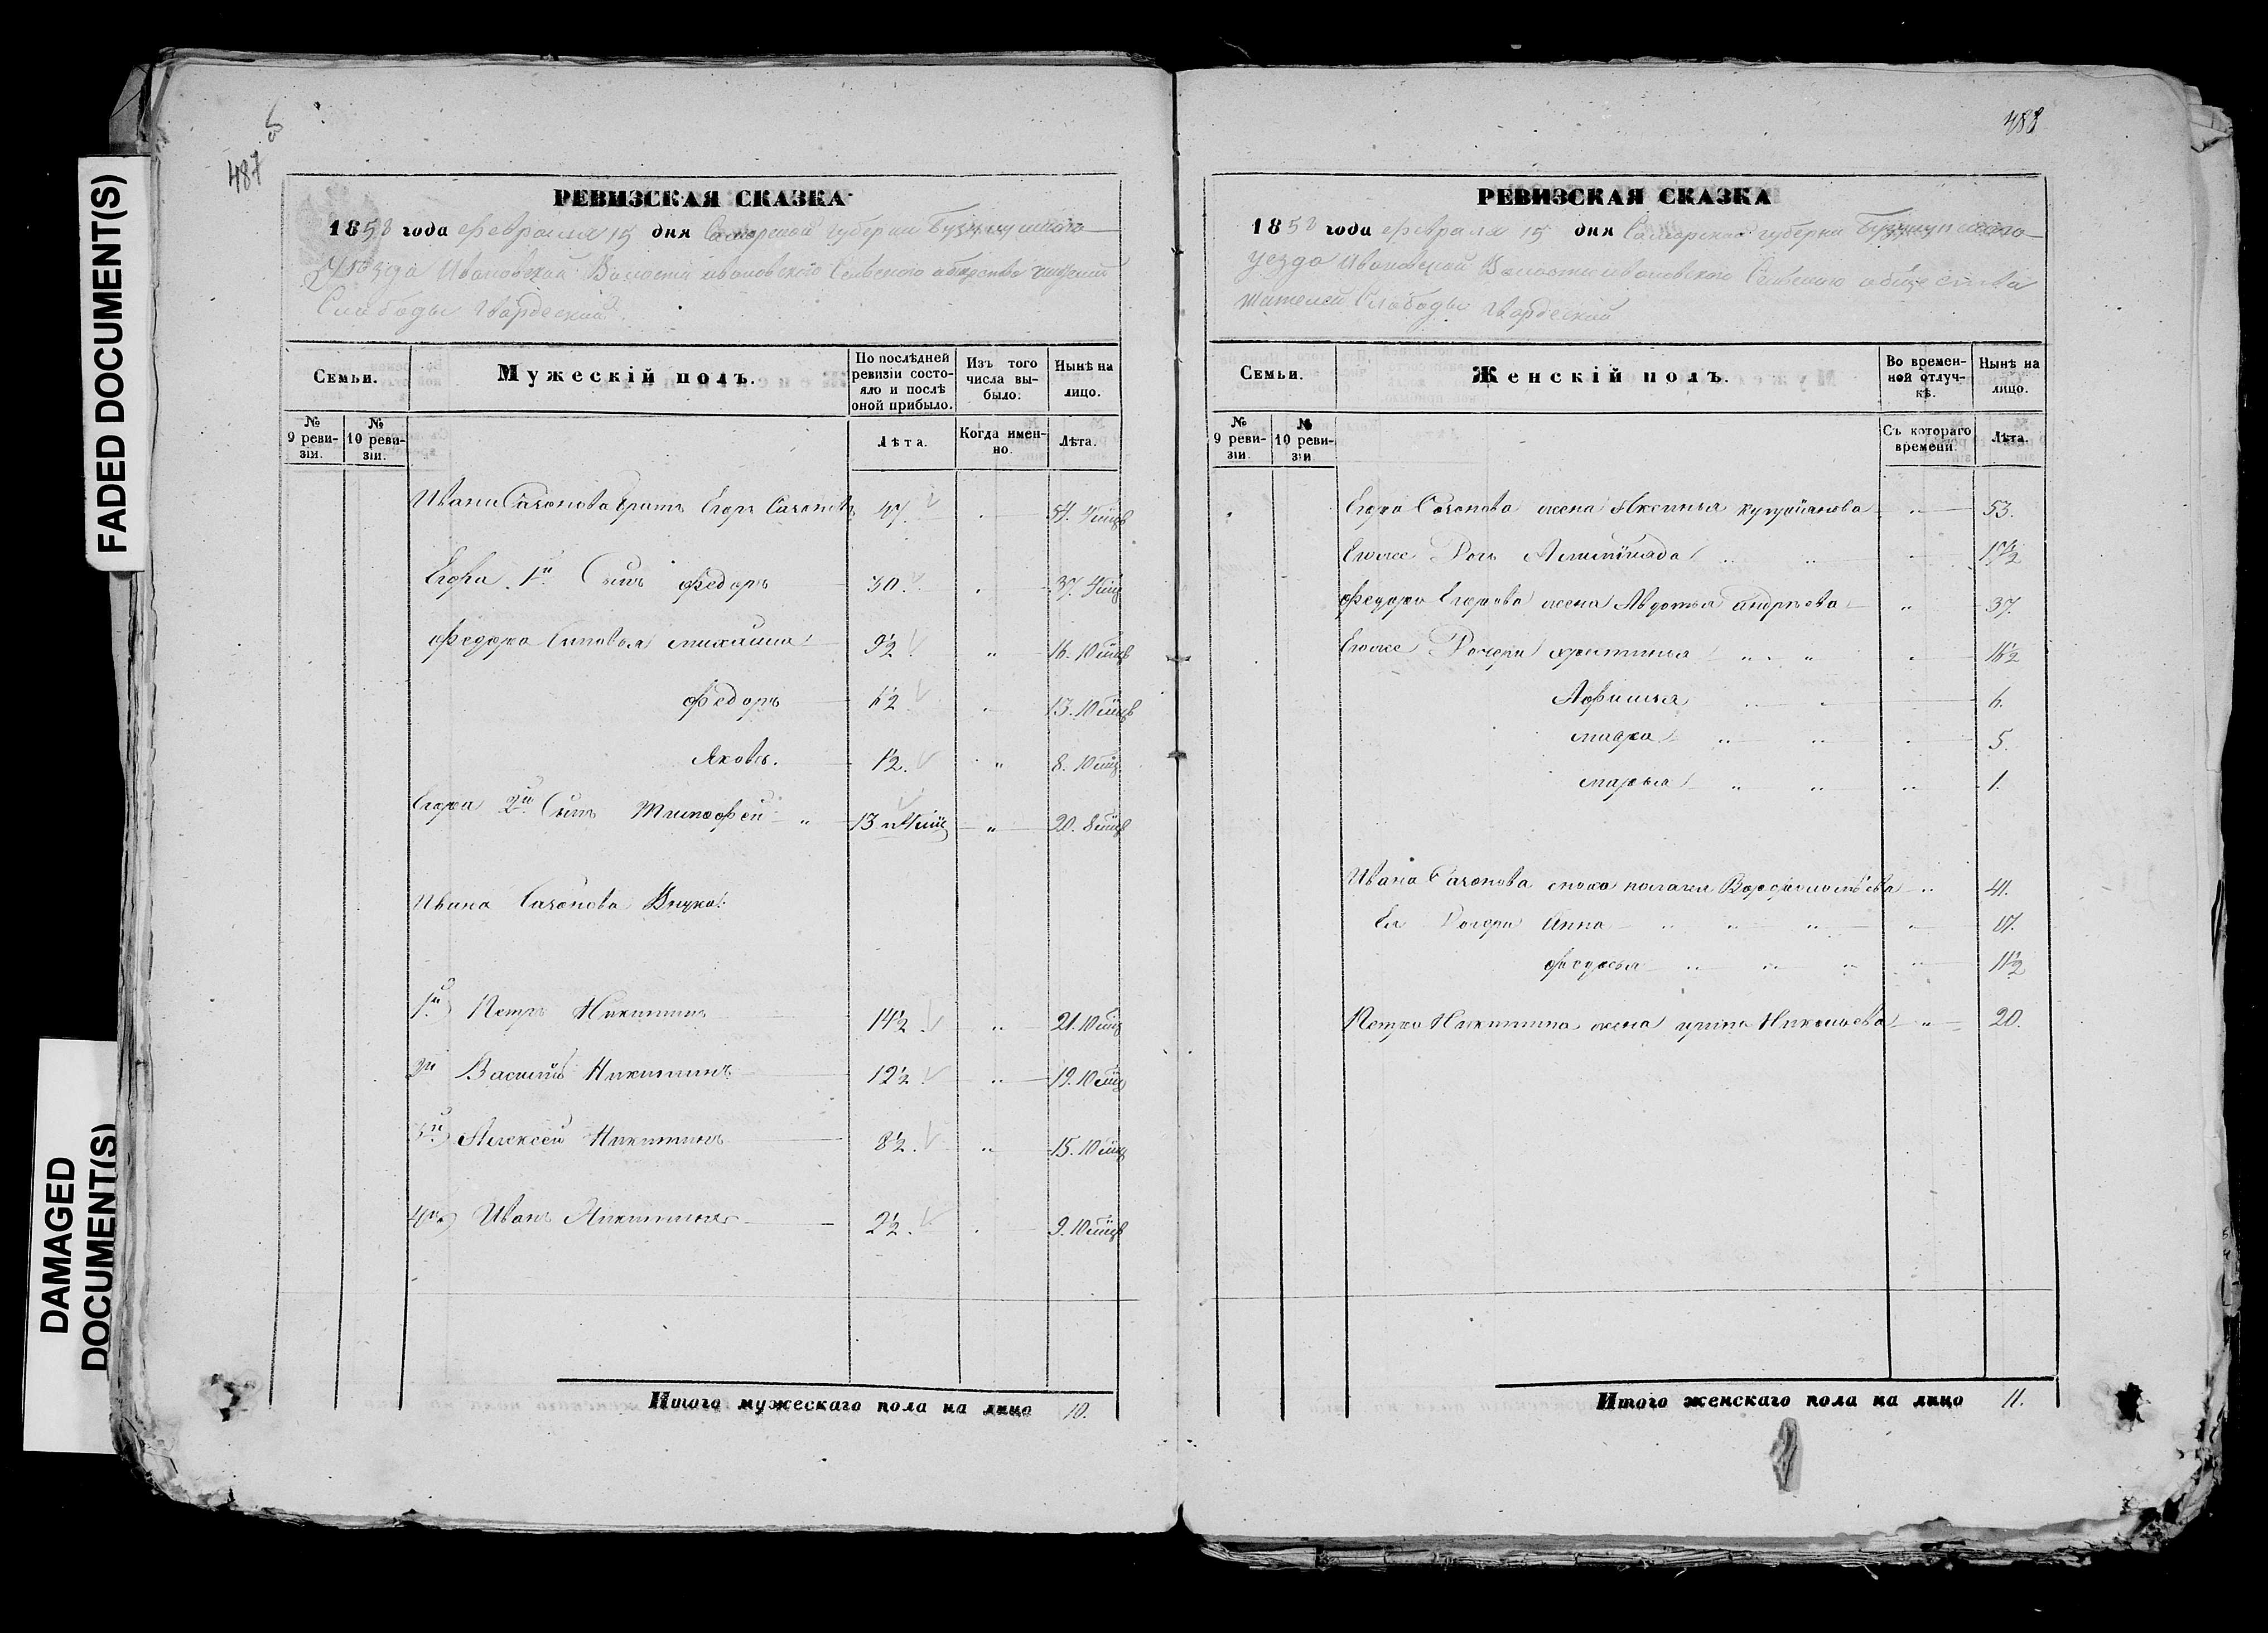 FADED DOCUMENT(S)
DAMAGED
DOCUMENT(S)
487
РЕВИЗСКАЯ СКАЗКА
1858 года февраля 15 дня Самарской губернии Бузулукскаго
Уѣзда Ивановской Волости ивановского Сельского общества
Слабоды Гвардеской
Семьи.
Мужескій полъ.
По послѣдней ревизіи состояло и послѣ оной прибыло.
Изъ того числа выбыло.
Нынѣ на лицо.
№ 9 ревизіи.
№ 10 ревизіи.
Лѣта.
Когда именно.
Лѣта.
Ивана Сазонова братъ Егоръ Сазоновъ 47. 54. 4 мцв
Егора 1й Сынъ федоръ 30. 37. 4 мц
федора Сыновья михаила 9½ " 16. 10 мцв
федоръ 6½ 13. 10 мцв
Яковъ. 1½. " 8. 10 мц
Егора 2й Сынъ Тимофей " 13 " 20. 8 мцв
Ивана Сазонова Внуки:
1й) Петръ Никитинъ 14½ " 21. 10 мц
2й Василий Никитинъ 12½ " 19. 10 мц
3й) Алексей Никитинъ 8½. " 15. 10 мц
4й) Иванъ Никитинъ 2½. 9. 10 мцв
Итого мужескаго пола на лицо 10.
488
РЕВИЗСКАЯ СКАЗКА
1858 года февраля 15 дня Самарской губерни Бузулукскаго
уезда Ивановской Волости ивановского Сельского общества
жителей Слободы Гвардеской
Семьи.
Женскій полъ.
Во временной отлучкѣ.
Нынѣ на лицо.
№ 9 ревизіи.
№ 10 ревизіи
Съ котораго времени.
Лѣта.
Егора Сазонова жена Аксинья " 53.
Егоже Дочь
федора Егорова жена Авдотья андреева " 37.
Егоже Дочери христинья " " 16½
Афимья 6.
мадра " " 5.
марья " " " 1.
Ивана Сазонова сноха Варфоломѣева " 41.
Ея Дочери Анна " " " " 17.
федосья " " " " 11½
Петра Никитина жена ирина Николаева " 20.
Итого женскаго пола на лицо 11.